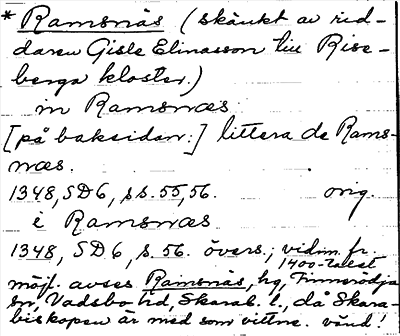 * Ramsnäs (skänkt av rid-
daren Gisle Elinasson till Rise-
berga kloster.)
in Ramsnæs
[på baksidan:] littera de Rams-
næs.
1348, SD6, s.s. 55, 56. orig.
i Ramsnæs
1348, SD6, s. 56. övers.; vidim. fr.
1400-talet
möjl. avses Ramsnäs, hg, Finnerödja
sn Vadsbo hd, Skarab. l., då Skara-
biskopen är med som vittne. vänd!